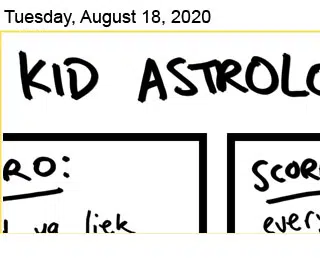 Tuesday, August 18, 2020
KID ASTROLO
RO:
SCOR
ya liek
every